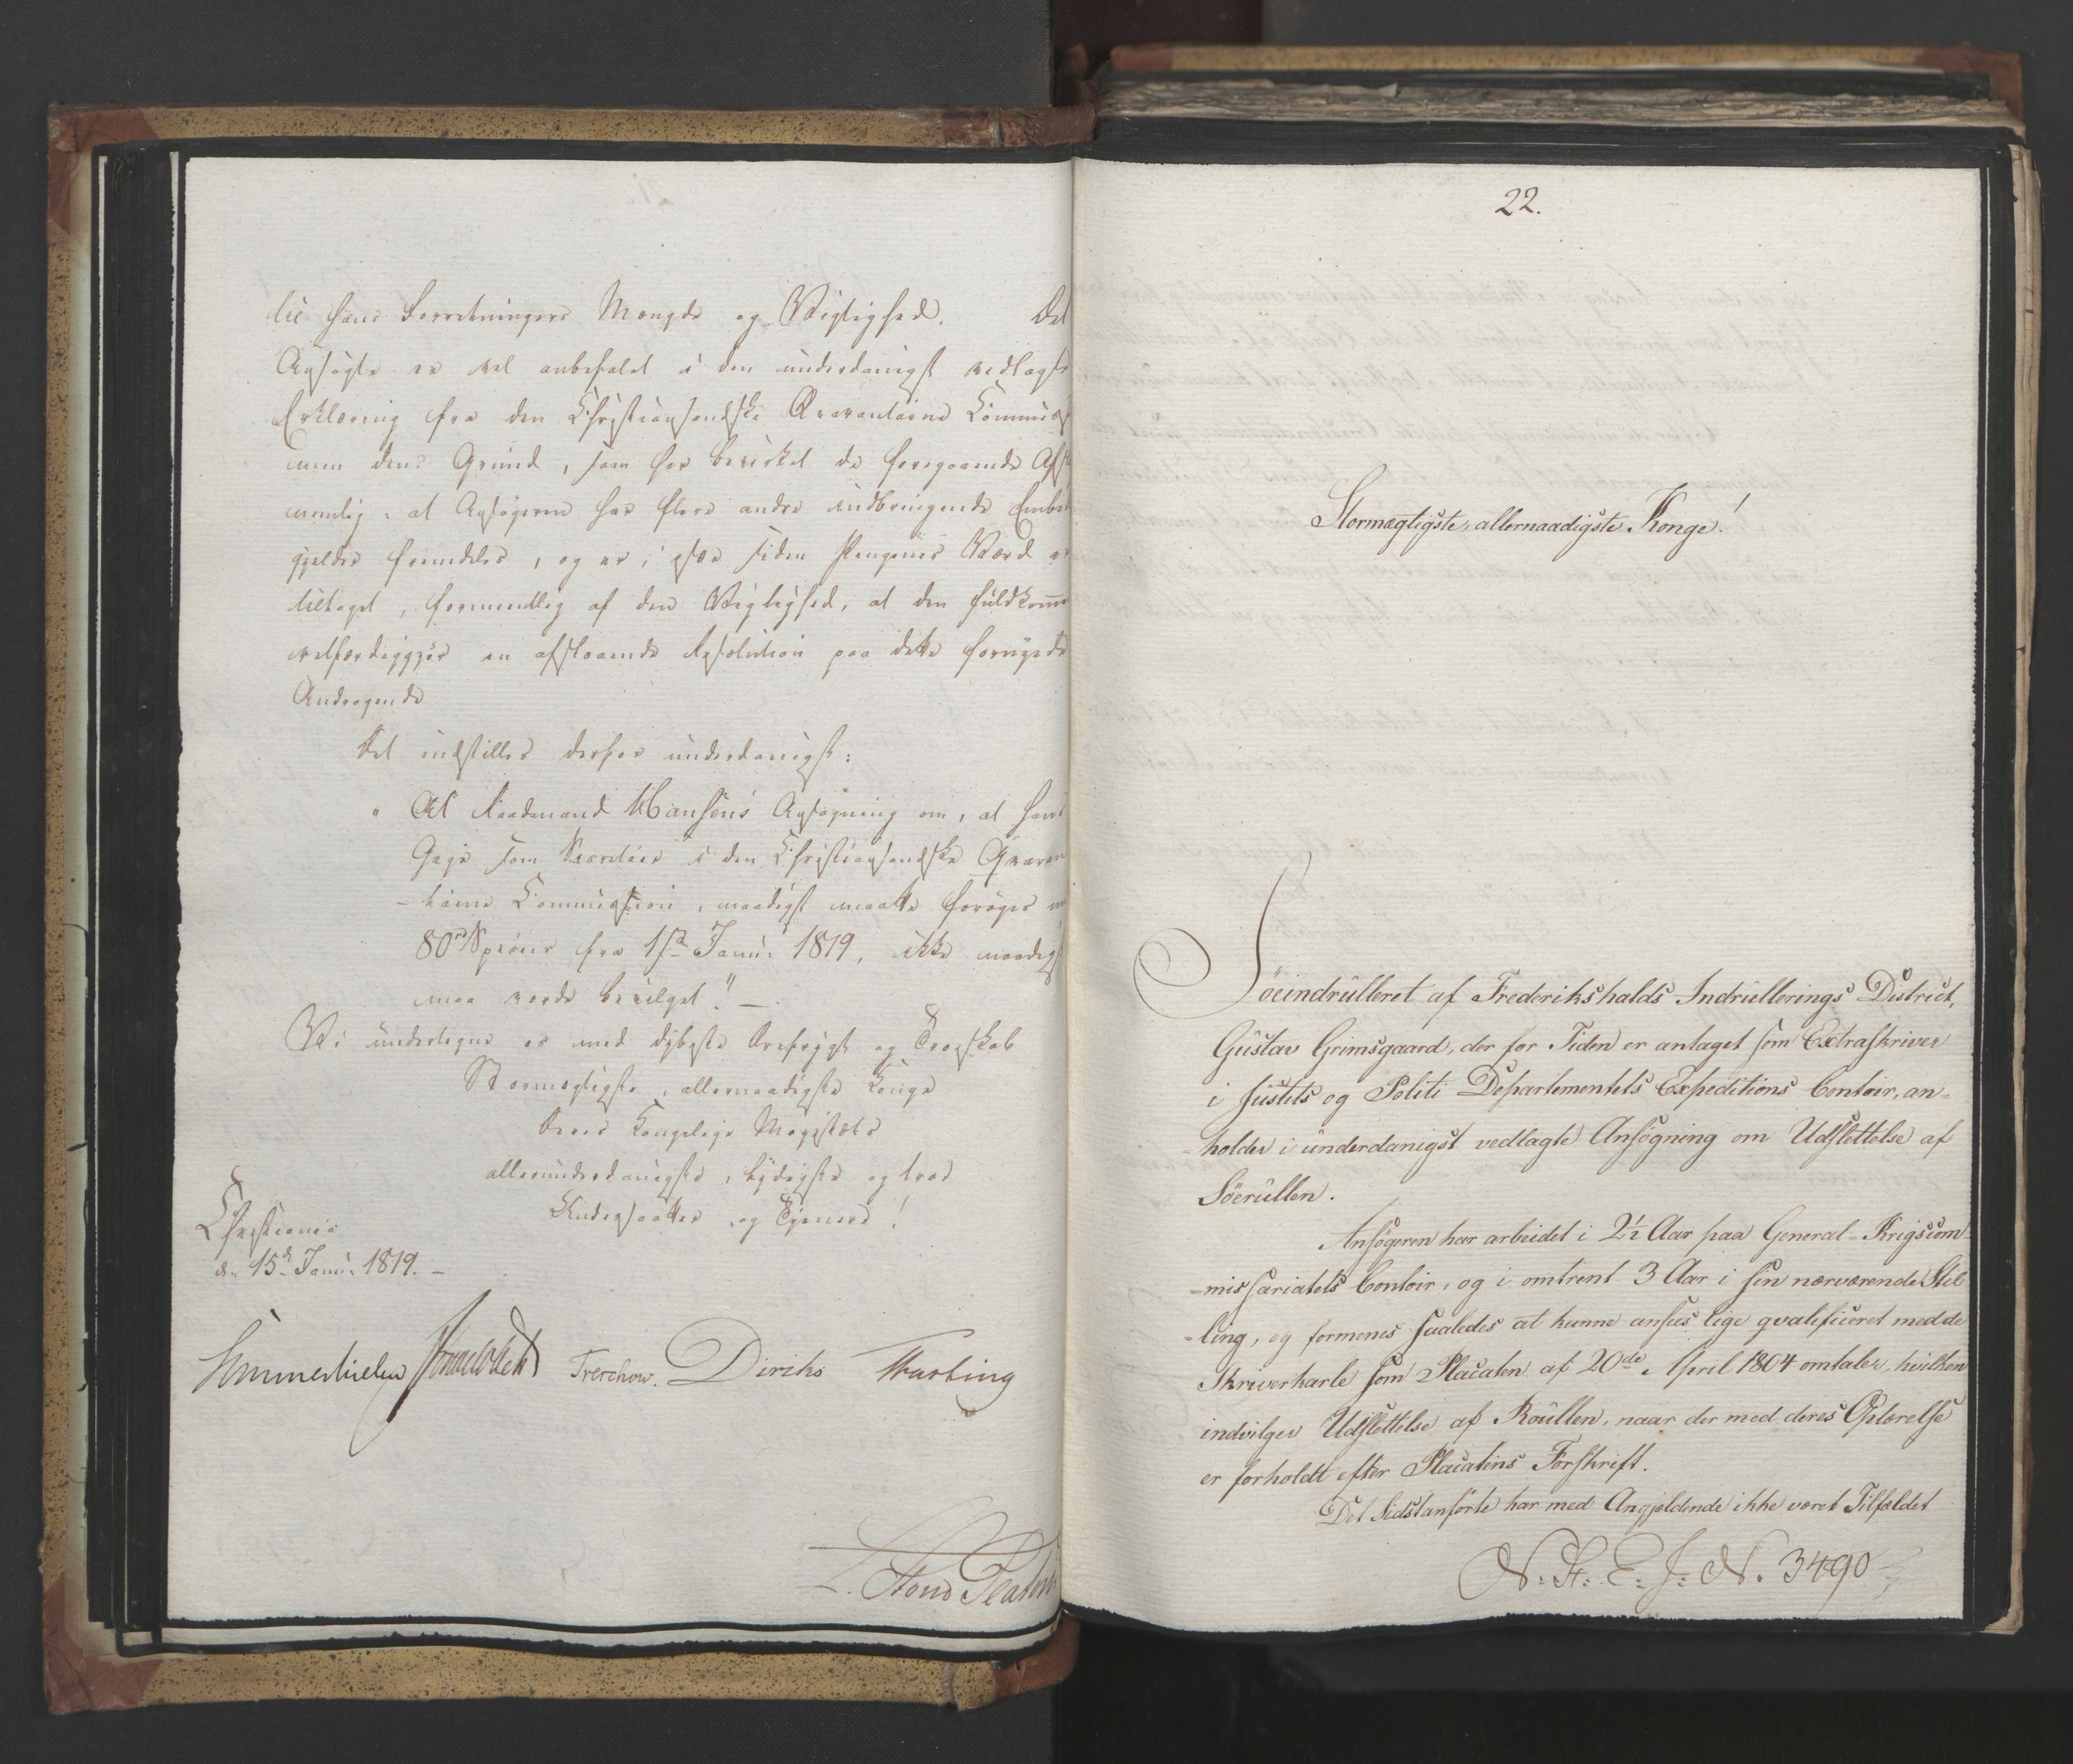 til hans Forretningers Mængde og Vigtighed. Det
Ansøgte er vel anbefalet i den underdanigst vedlagte
Erklæring fra den Christiansandske Qvarantaine Commis
men den Grund, som har bevirket de foregaaende Afsl
nemlig: at Ansøgeren har flere andre indbringende Embe
gjelder fremdeles, og er, især siden Pengenes Værd er
tiltaget, formeentlig af den Vigtighed, at den fuldkomme
retfærdiggjør en afslaaende Resolution paa dette fornyede
Andragende
Det indstilles derfor underdanigst:
" At Raadmand Hansens Ansøgning om, at hans
Gage som Secretair i den Christiansandske Qvaran
-taine Commission, naadigst maatte forøges m
80 Spd aarl fra 1ste Janu: 1819, ikke naadigst
maa vorde bevilget." —
Vi undertegne os med dybeste Ærefrygt og Troeskab
Stormægtigste, allernaadigste Konge
Deres Kongelige Majestæts
allerunderdanigste, lydigste og troe
Undersaatter og Tjenere!
Christiania
d: 15de Janu: 1819. —
Sommerhielm Treschow. Diriks Fasting
L. Stoud Platou
22.
Stormægtigste, allernaadigste Konge!
Søeindrulleret af Frederikshalds Indrullerings District,
Gustav Grimsgaard, der for Tiden er antaget som Extraskriver
i Justits og Politi Departementets Expeditions Contoir, an=
=holder i underdanigst vedlagte Ansøgning om Udslettelse af
Söerullen.
Ansøgeren har arbeidet i 2½ Aar paa General-Krigscom
=missariatets Contoir, og i omtrent 3 Aar i sin nærværende Stil
=ling, og formenes saaledes at kunne ansees lige qvalificeret med de
Skriverkarle som Placaten af 20de April 1804 omtaler, hvilken
indvilger Udslettelse af Roullen, naar der med deres Oplærelse
er forholdt efter Placatens Forskrift.
Det Sidstanførte har med Angjeldende ikke været Tilfældet
N: St: E: J: N. 3490